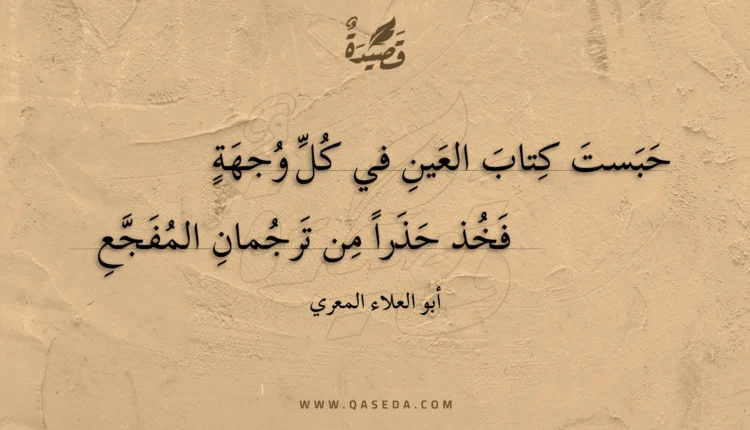 قَصِيدَةٌ
حَبَستَ كِتابَ العَينِ في كُلِّ وُجهَةٍ
فَخُذ حَذَراً مِن تَرجُمانِ المُفَجَّعِ
أبو العلاء المعري
WWW.QASEDA.COM